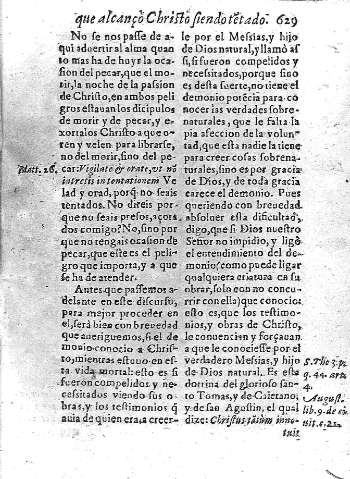 que alcançò Christo siendo tẽtado. 629
No se nos passe de a-
qui aduertir al alma quan
to mas ha de huyr la oca
sion del pecar, que el mo-
rir, la noche de la passion
de Christo, en ambos peli
gros estauan los dicipulos
de morir y de pecar, y e-
xortalos Christo a que o-
ren y velen para librarse,
no del morir, sino del pe-
Matt. 26.
car: Vigilate & orate, vt nõ
intretis in tentationem Ve
lad y orad, porq̃ no seais
tentados. No direis por-
que no seais presos, açota
dos comigo? No, sino por
que no tengais ocasion de
pecar, que este es el peli-
gro que importa, y a que
se ha de atender.
Antes que passemos a-
delante en este discurso,
para mejor proceder en
el, serà bien con breuedad
que aueriguemos, si el de
monio conocio a Chris-
to, mientras estuuo en es-
ta vida mortal: esto es si
fueron compelidos y ne-
cessitados viendo sus o-
bras, y los testimonios q̃
auia de quien era, a creer-
le por el Messias, y hijo
de Dios natural, y llamò as
si, si fueron compelidos y
necessitados, porque sino
es desta suerte, no tiene el
demonio potẽcia para co
nocer las verdades sobre-
naturales, que le falta la
pia afeccion de la volun-
tad, que esta nadie la tiene
para creer cosas sobrena-
turales, sino es por gracia
de Dios, y de toda gracia
carece el demonio. Pues
queriendo con breuedad
absoluer esta dificultad,
digo, que si Dios nuestro
Señor no impidio, y ligò
el entendimiento del de-
monio, como puede ligar
qualquiera criatura en su
obrar, solo con no concu-
rrir con ella, que conocio:
esto es, que los testimo-
nios, y obras de Christo,
le conuencian y forçauan
a que le conociesse por el
verdadero Messias, y hijo
de Dios natural. Es esta
dotrina del glorioso san-
to Tomas, y de Caietano,
y de san Agustin, el qual
dize: Christus tãtùm inno-
tuit
S. Tho 3. p.
q. 44. art.
August.
lib. 9. de ci
uit. c. 21.